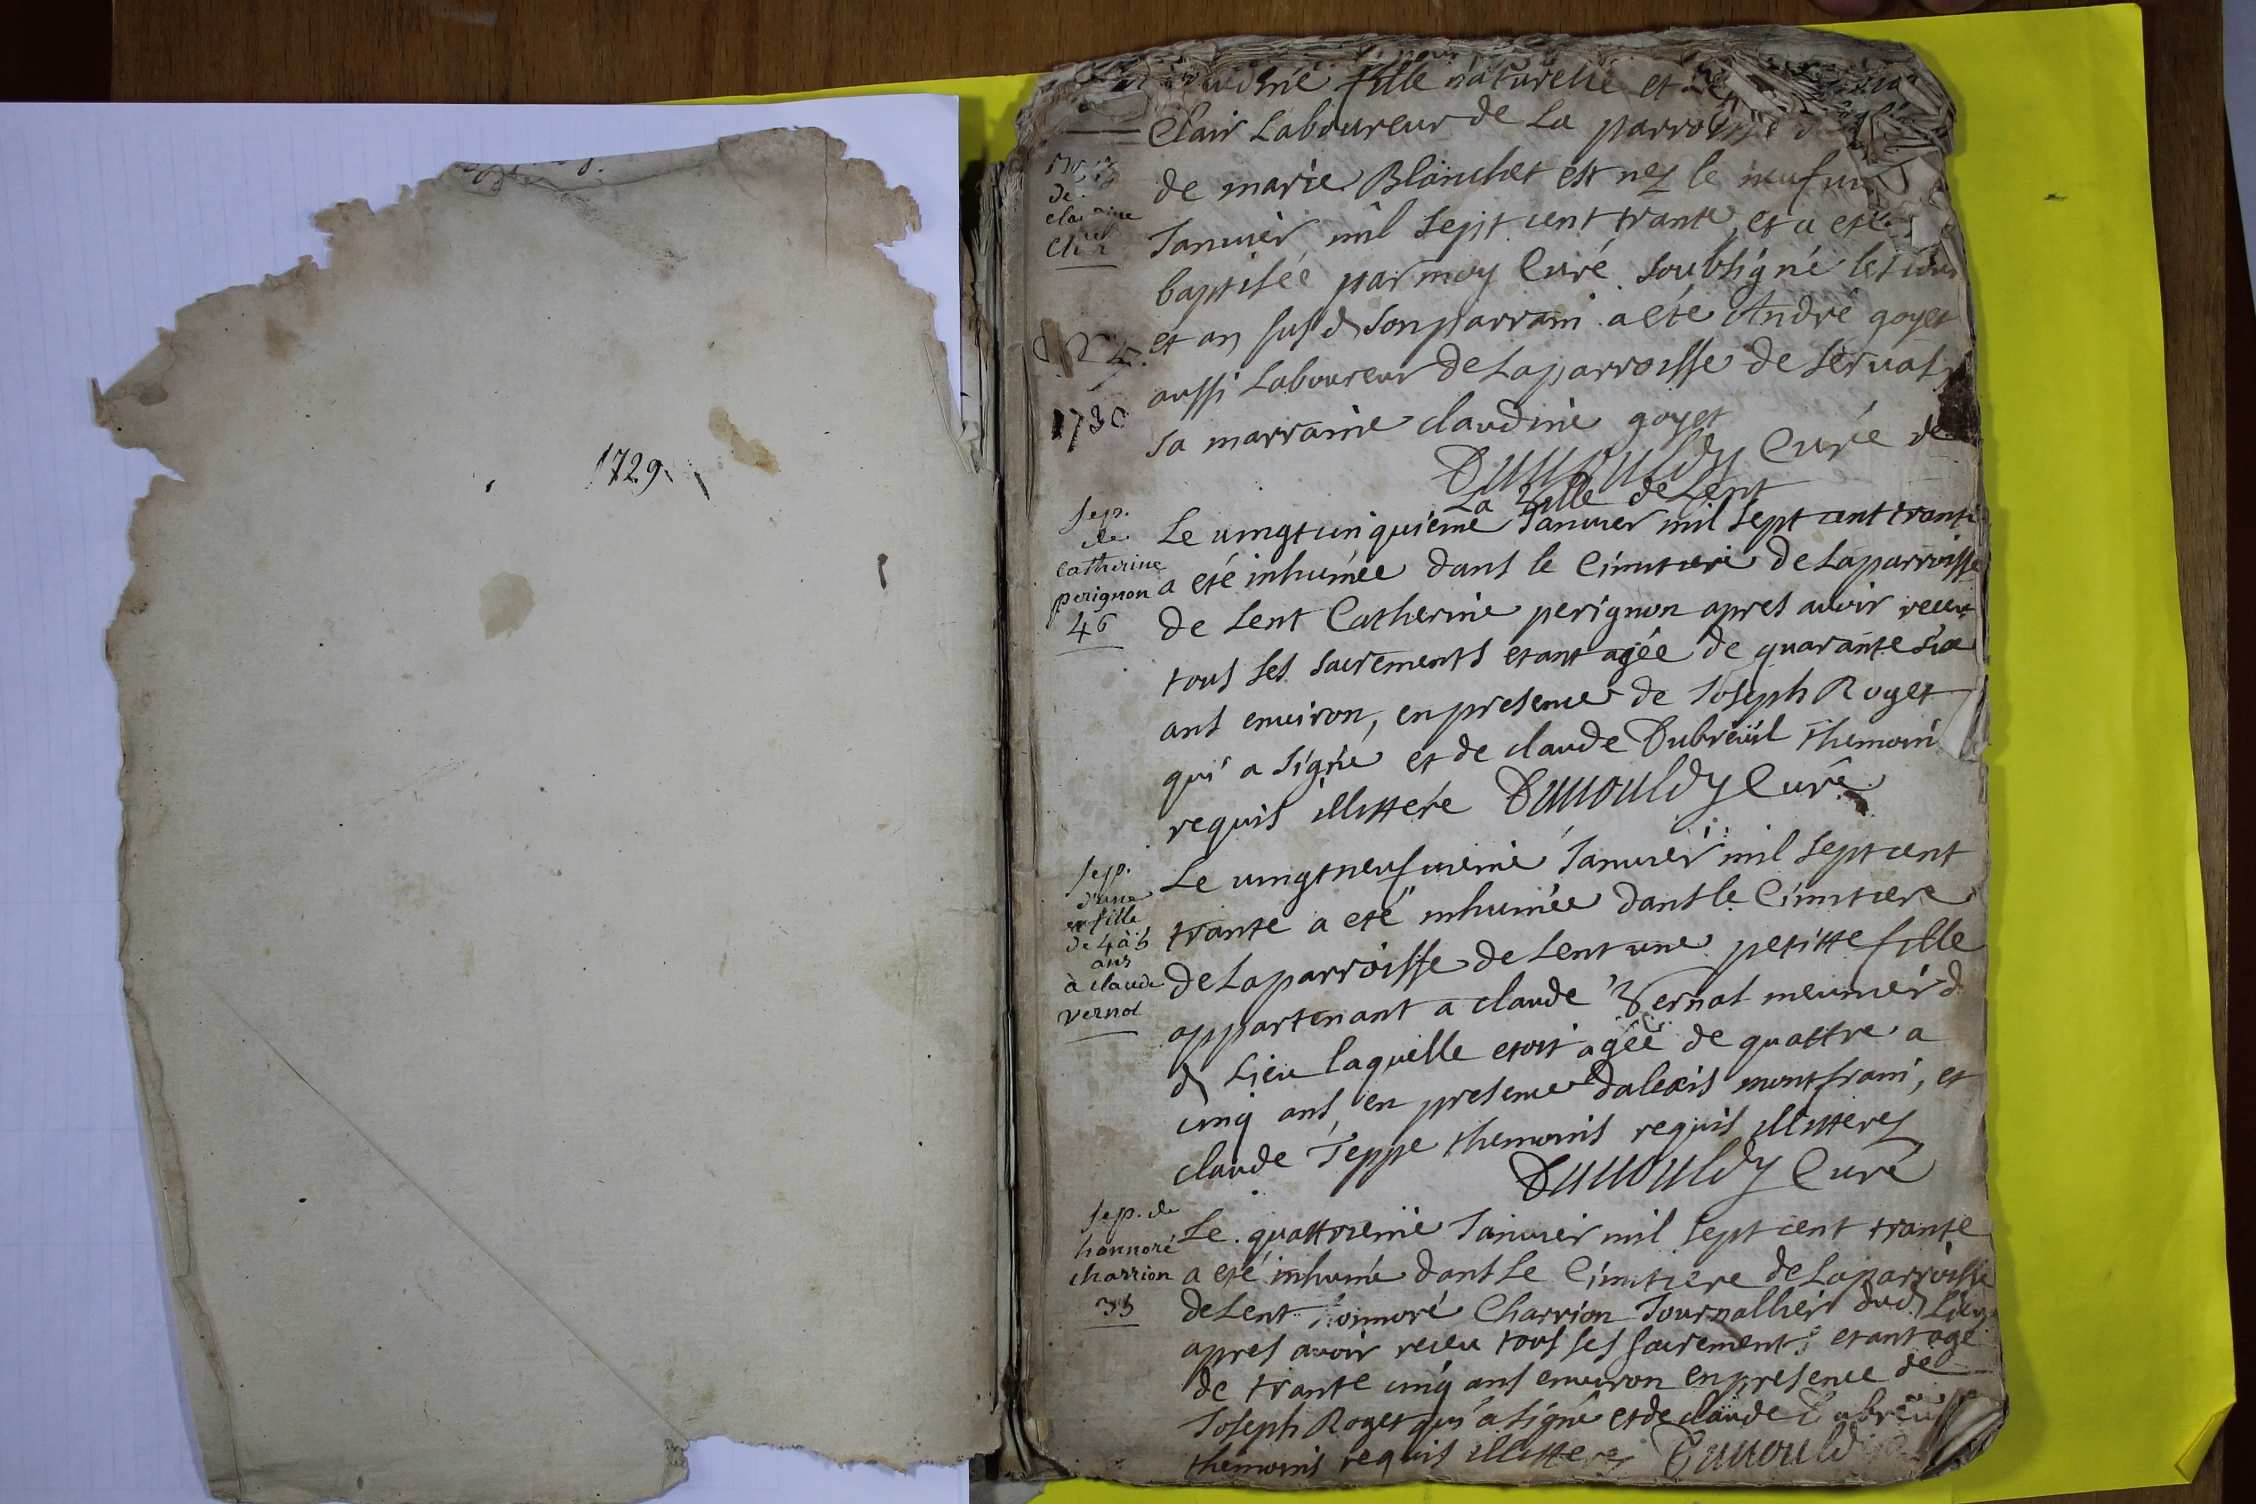 1729
fille naturelle et
Clair Laboureur de La parroisse
de marie Blanchet est nez le neufvie
Janvier mil sept cent trante, et a eté
baptisée par moy Curé soubsigné les jour
et an susd son parrain a eté André goyet
aussi Laboureur de Laparroisse de servas
sa marraine claudine goyet
Curé de
La Ville de Lent
de
claudine
clair
1730
sep.
de
catherine
perignon
46
Le vingtcinquieme Janvier mil sept cent trante
a eté inhumée dans le Cimitiere de Laparroisse
de Lent Catherine perignon apres avoir receu
tous ses sacrements etant agée de quarante six
ans environ, en presence de Joseph Roget
qui a signé et de claude Dubreuil themoin
requis illitteré Curé
sep.
d'une
fille
de 4 à 5
ans
à claude
vernat
Le vingtneufvieme Janvier mil sept cent
trante a eté inhumée dans le Cimitiere
de Laparroisse de Lent une petitte fille
appartenant a claude Vernat meunier d
d Lieu laquelle etoit agée de quattre a
cinq ans, en presence dalexis montfrain, et
claude Teppe themoins requis illitterez
Curé
sep. de
honnoré
charrion
35
Le quattrieme Janvier mil sept cent trante
a eté inhumé dans Le Cimitiere de Laparroisse
de Lent honnoré Charrion Journallier dud Lieu
apres avoir receu tous ses sacrements etant agé
de trante cinq ans environ en presence de
Joseph Roget qui a signé et de claude Dubreuil
themoins requis illitterez